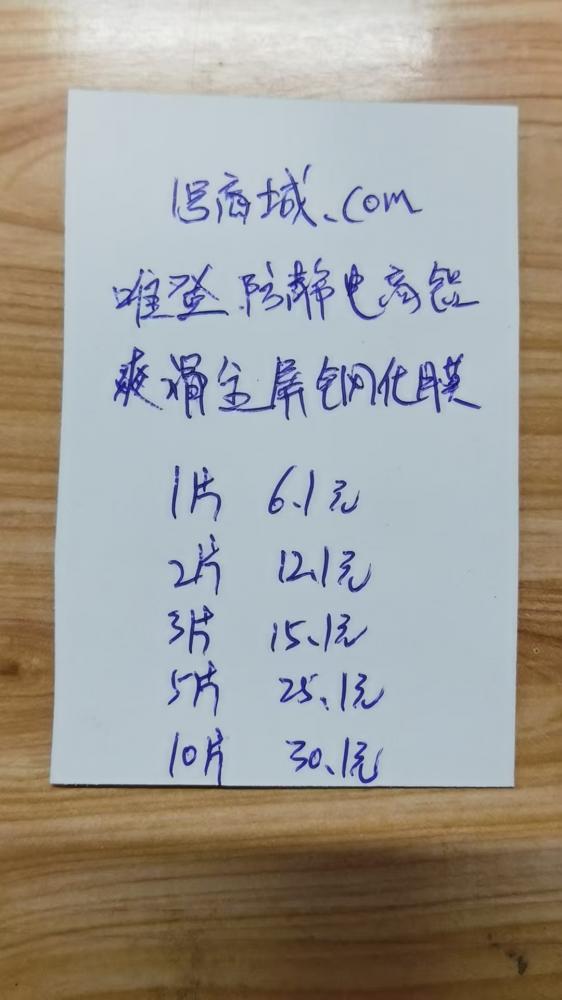 1号商城.com
唯登防静电高铝
爽滑全屏钢化膜
1片 6.1元
2片 12.1元
3片 15.1元
5片 25.1元
10片 30.1元